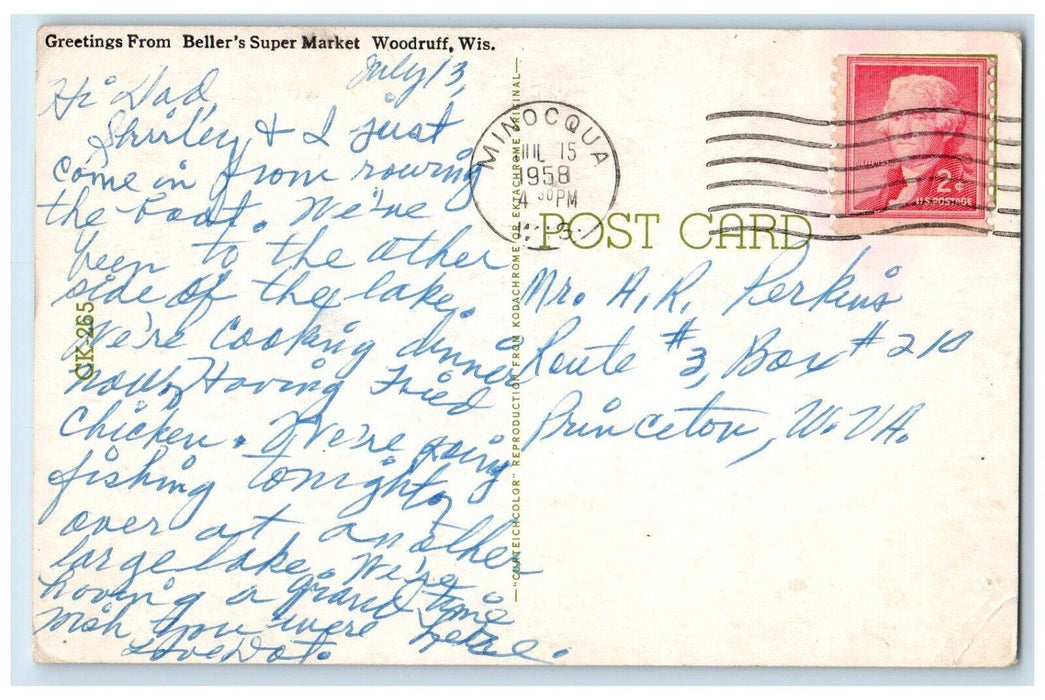 Greetings From Beller's Super Market Woodruff, Wis.
July 13,
Hi Dad,
Shirley & I just
come in from rowing
the boat. We've
been to the other
side of the lake.
We're cooking dinner
now, Having Fried
Chicken. We're going
fishing tonight,
over at another
large lake. We're
having a grand time
wish you were here.
Love Dot.
CK-265
—"CURTEICHCOLOR" REPRODUCTION FROM KODACHROME OR EKTACHROME ORIGINAL—
MINOCQUA
JUL 15
1958
4 30 PM
WIS.
2¢
U.S. POSTAGE
POST CARD
Mr. A.R. Perkins
Route #3, Box #210
Princeton, W. VA.